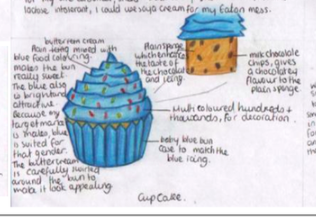 lactose intolerant, I could use soya cream for my Eaton mess.
buttercream
icing mixed with
blue food colouring.
makes the bun
really sweet.
The blue also
is bright and
attractive.
Because my
target market
is males, blue
is suited for
that gender.
The buttercream
is carefully swirled
around the bun to
make it look appealing
Plain sponge
which enhances
the taste of
the chocolate
and icing.
milk chocolate
chips, gives
a chocolatey
flavour to the
plain sponge.
Multi coloured hundreds +
thousands, for decoration.
baby blue bun
case to match the
blue icing.
Cup Cake.